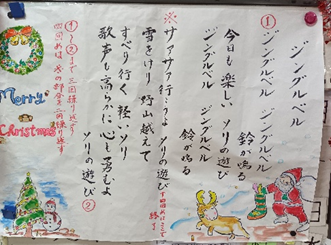 ジングルベル
① ジングルベル ジングルベル
鈴が鳴る
今日も楽しい ソリの遊び
ジングルベル ジングルベル
鈴が鳴る
※ サァサァ行こうよ ソリの遊び
雪をけり 野山越えて
すべり行く 軽いソリ
歌声も高らかに心も勇むよ
ソリの遊び ②
①~②まで三回繰り返す
Merry
Christmas